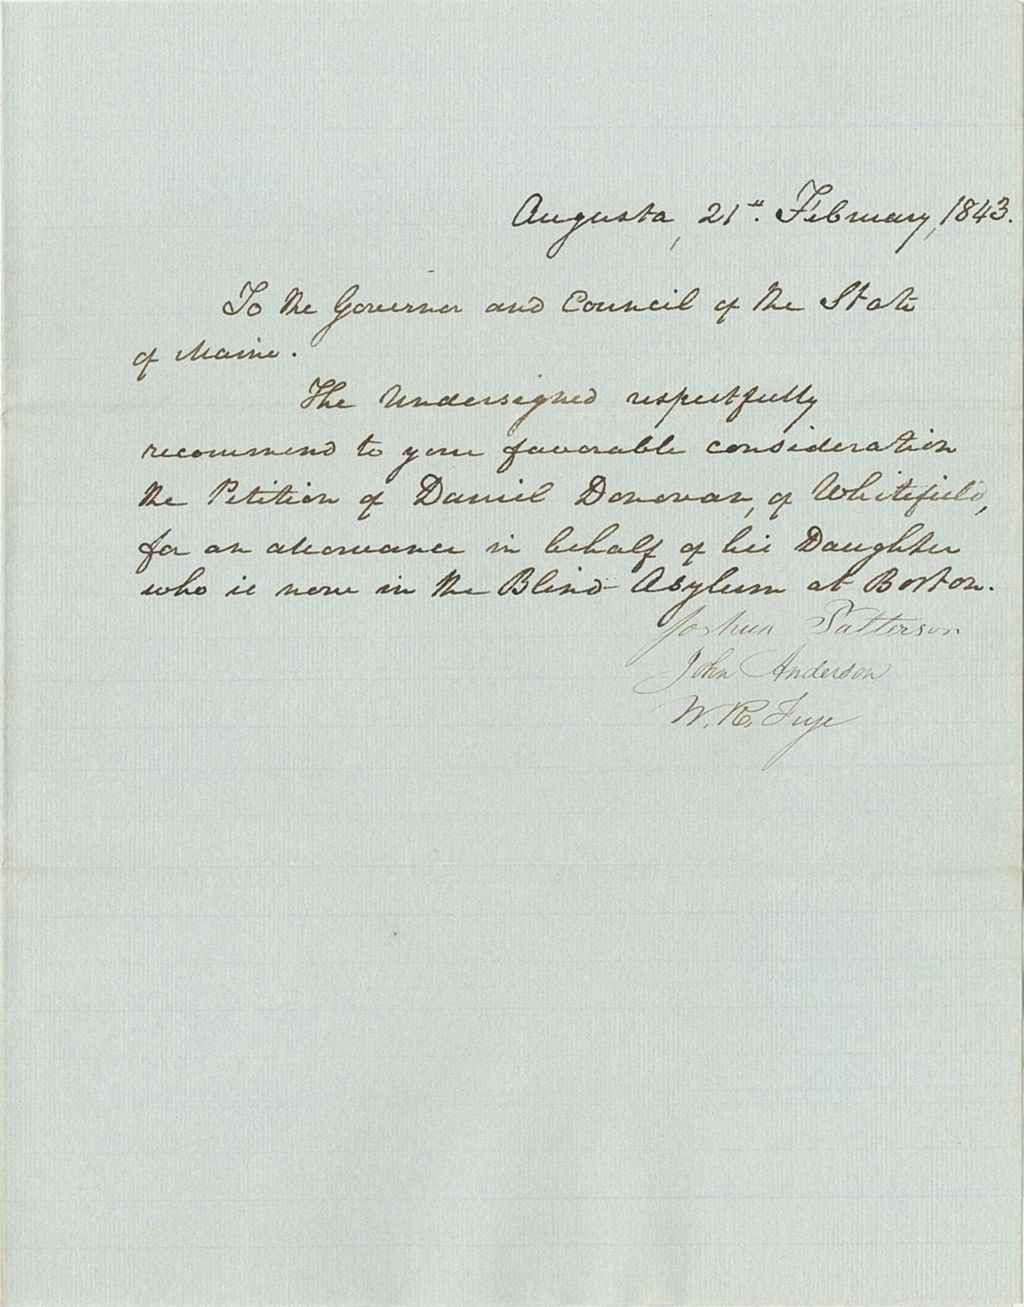 Augusta, 21st. February, 1843.
To the Governor and Council of the State
of Maine.
The Undersigned respectfully
recommend to your favorable consideration
the Petition of Daniel Donovan, of Whitefield,
for an allowance in behalf of his Daughter
who is now in the Blind Asylum at Boston.
Joshua Patterson
John Anderson
W. R.